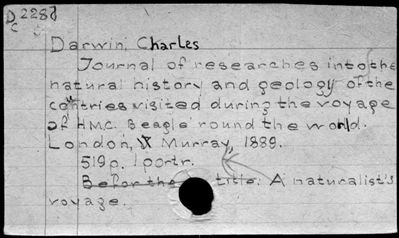 D 2288
C
Darwin, Charles
Journal of researches into the
natural history and geology of the
countries visited during the voyage
of H.M.C. Beagle round the world.
London, Murray, 1889.
519p. 1 portr.
Befor the title: A naturalist's
voyage.